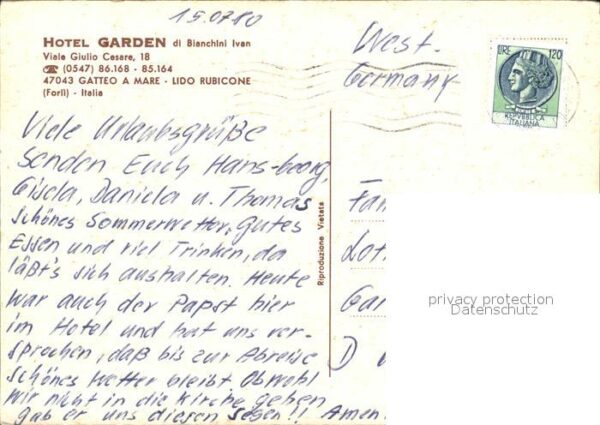 15.07.80
HOTEL GARDEN di Bianchini Ivan
Viale Giulio Cesare, 18
☎ (0547) 86.168 - 85.164
47043 GATTEO A MARE - LIDO RUBICONE
(Forlì) - Italia
West.
Germany
LIRE 120
REPVBBLICA
ITALIANA
Viele Urlaubsgrüße
Senden Euch Hans-Georg,
Gisela, Daniela u. Thomas
Schönes Sommerwetter, Gutes
Essen und viel Trinken, da
läßt's sich aushalten. Heute
war auch der Papst hier
im Hotel und hat uns ver-
sprochen, daß bis zur Abreise
schönes Wetter bleibt Obwohl
wir nicht in die Kirche gehen
gab er uns diesen Segen!! Amen
Riproduzione Vietata
Fam
Lot
D
privacy protection
Datenschutz